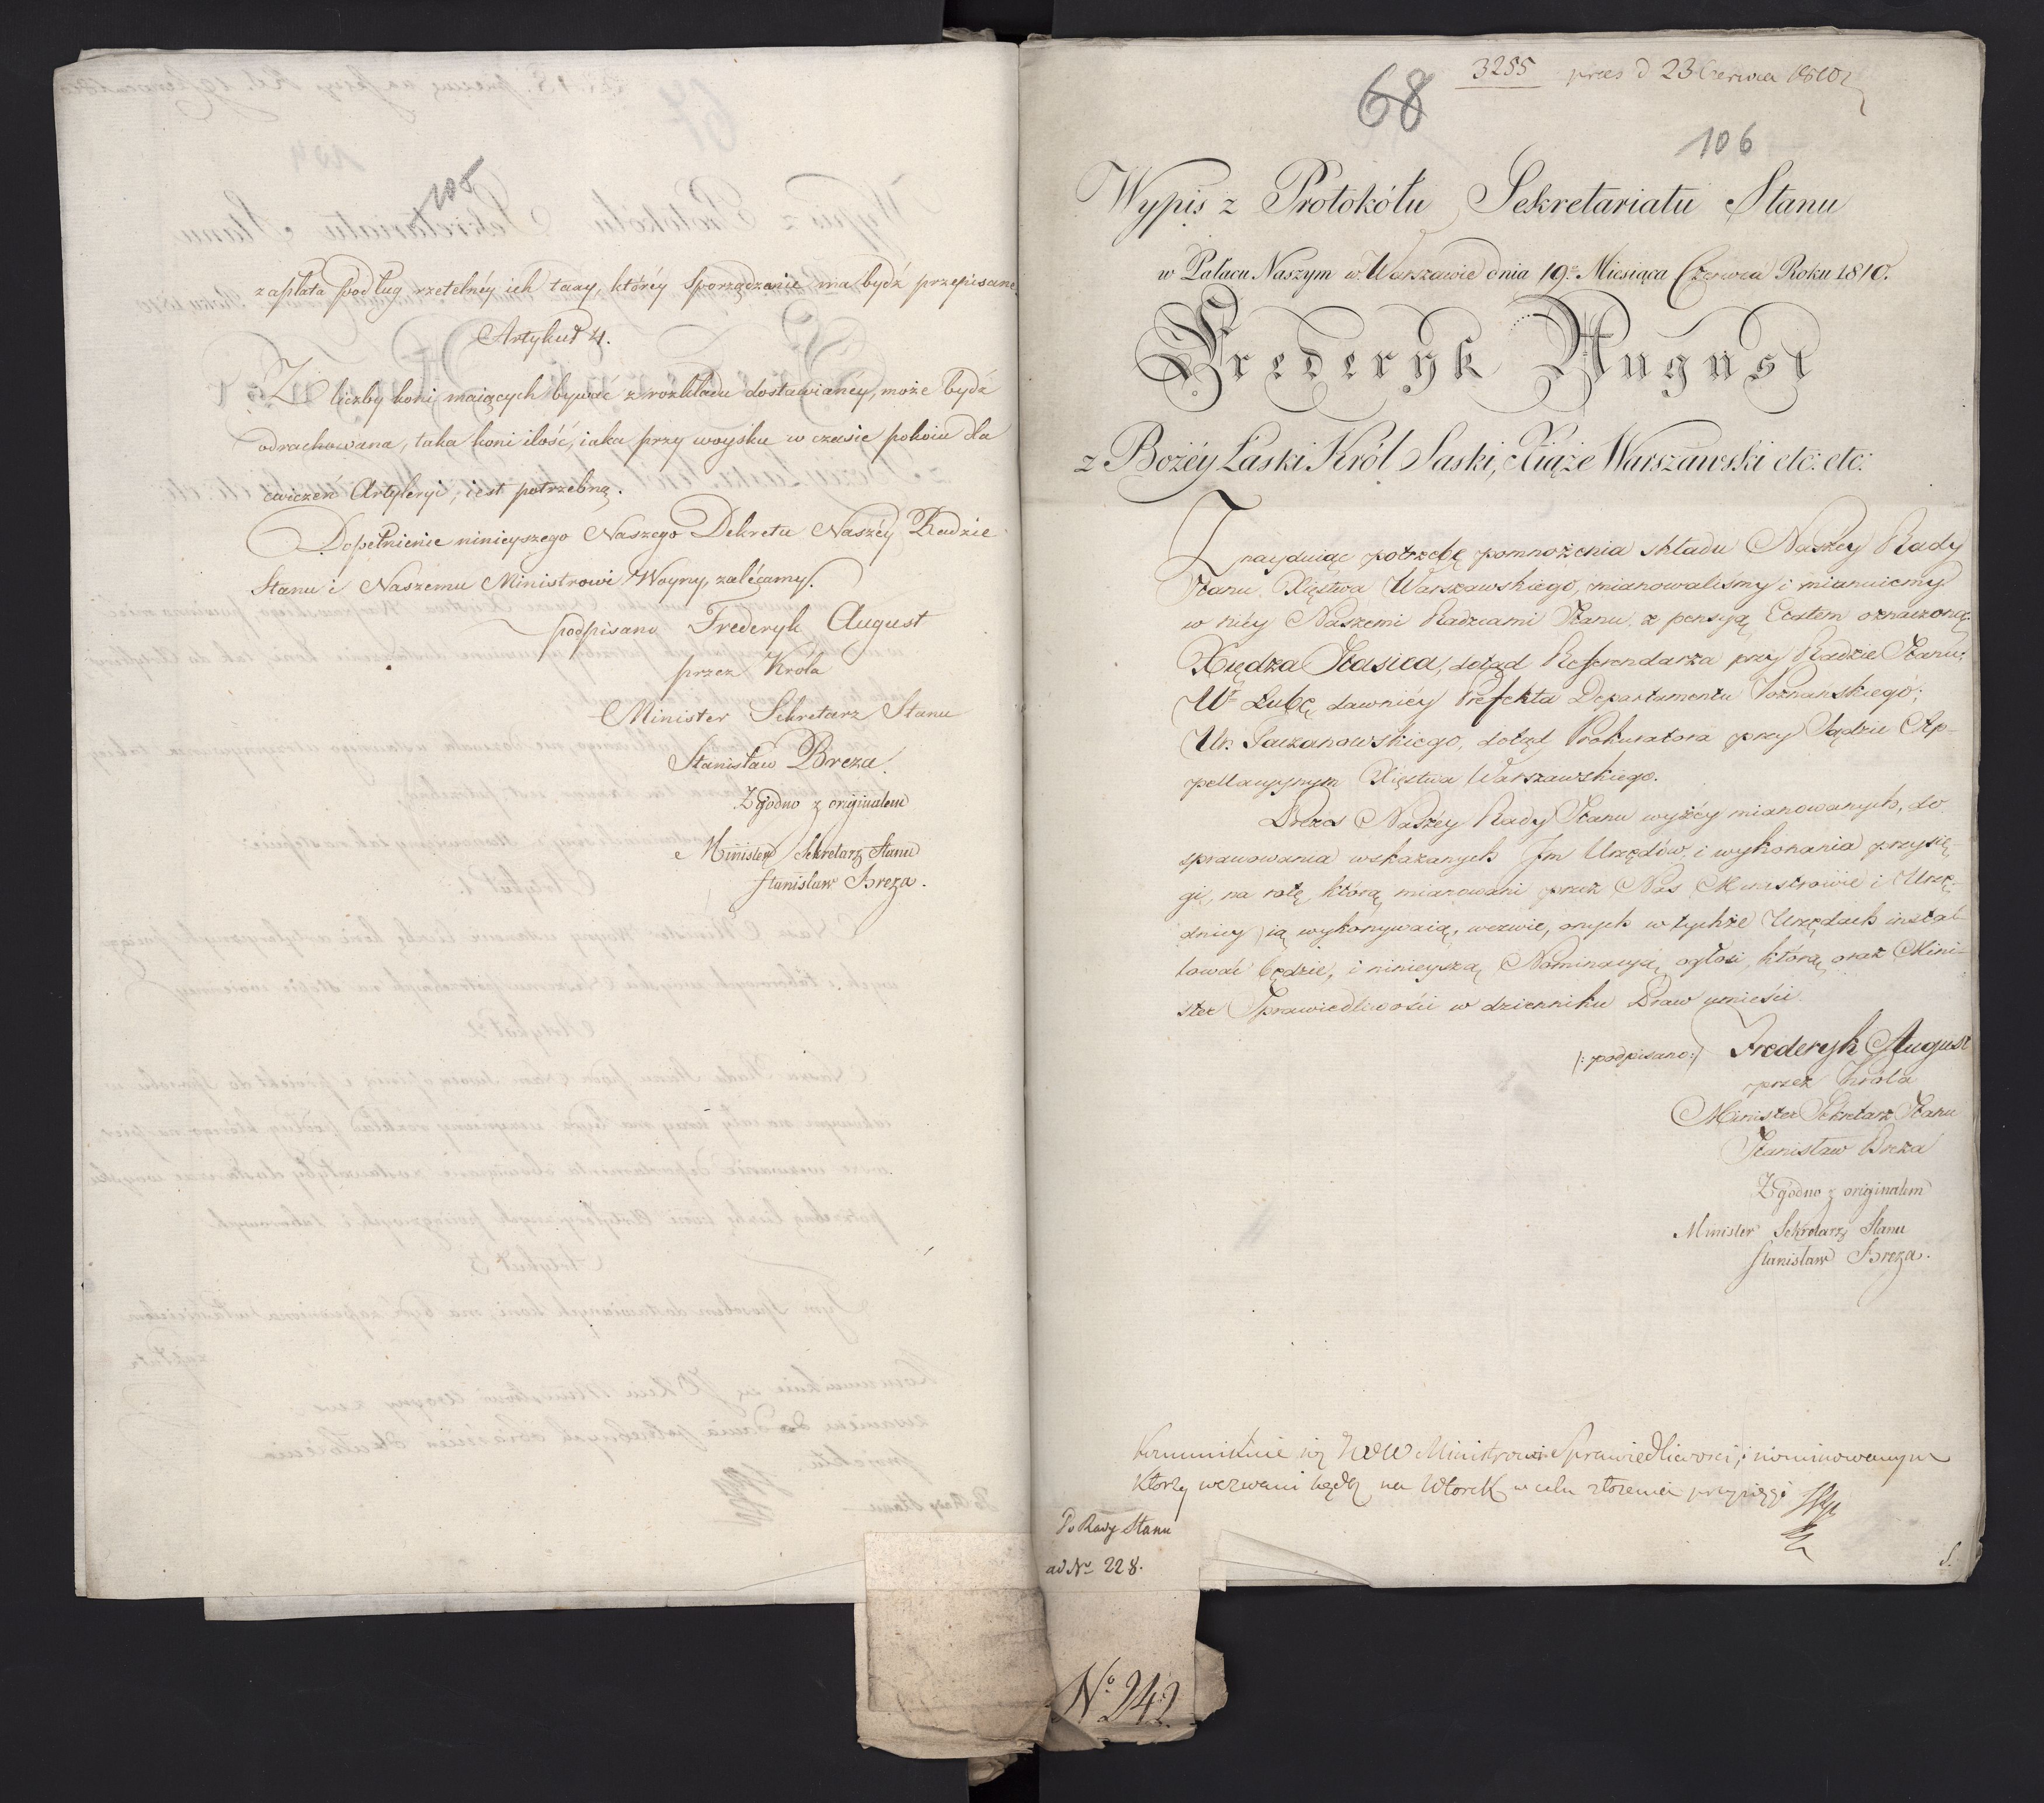 105
zapłata podług rzetelnéy ich taxy, któréy sporządzenie ma bydź przepisane.
Artykuł 4.
Z liczby koni, maiących bywać z rozkładu dostawianéy, może bydź
odrachowana, taka koni ilość, iaka przy woysku w czasie pokoiu dla
cwiczeń Artyleryi, iest potrzebną.
Dopełnienie ninieyszego Naszego Dekretu Naszéy Radzie
Stanu i Naszemu Ministrowi Woyny, zalécamy.
podpisano Frederyk August
przez Króla
Minister Sekretarz Stanu
Stanisław Breza.
Zgodno z originałem
Minister Sekretarz Stanu
Stanisław Breza.
3255 præs d 23 Czerwca 1810
68
106
Wypis z Protokółu Sekretariatu Stanu
w Pałacu Naszym w Warszawie dnia 19. Miesiąca Czerwca Roku 1810.
Frederyk August
z Bożéy Łaski Król Saski, Xiąże Warszawski etc: etc:
Znayduiąc potrzebę pomnożenia składu Naszéy Rady
Stanu Xięstwa Warszawskiego, mianowaliśmy i mianuiemy
w niéy Naszemi Radzcami Stanu z pensyą Etatem oznaczoną:
Xiędza Stasica, dotąd Referendarza przy Radzie Stanu;
Ur. Łubę, dawniéy Prefekta Departamentu Poznańskiego;
Ur. Paczanowskiego, dotąd Prokuratora przy Sądzie Ap-
pellacyynym Xięstwa Warszawskiego.
Prezes Naszéy Rady Stanu wyżéy mianowanych, do
sprawowania wskazanych Im Urzędów, i wykonania przysię-
gi, na rotę, którą mianowani przez Nas Ministrowie i Urzę-
dnicy ią wykonywaią, wezwie, onych w tychże Urzędach instal-
lować będzie, i ninieyszą Nominacyą ogłosi, którą oraz Mini-
ster Sprawiedliwości w dzienniku Praw umieści.
/: podpisano :/ Frederyk August
przez Króla
Minister Sekretarz Stanu
Stanisław Breza
Zgodno z originałem
Minister Sekretarz Stanu
Stanisław Breza.
Kommunikuie się JWW Ministrowi Sprawiedliwości, i nominowanym
którzy wezwani będą na Wtorek w celu złożenia przysięgi
Do Rady Stanu
ad No 228.
No 242
S.